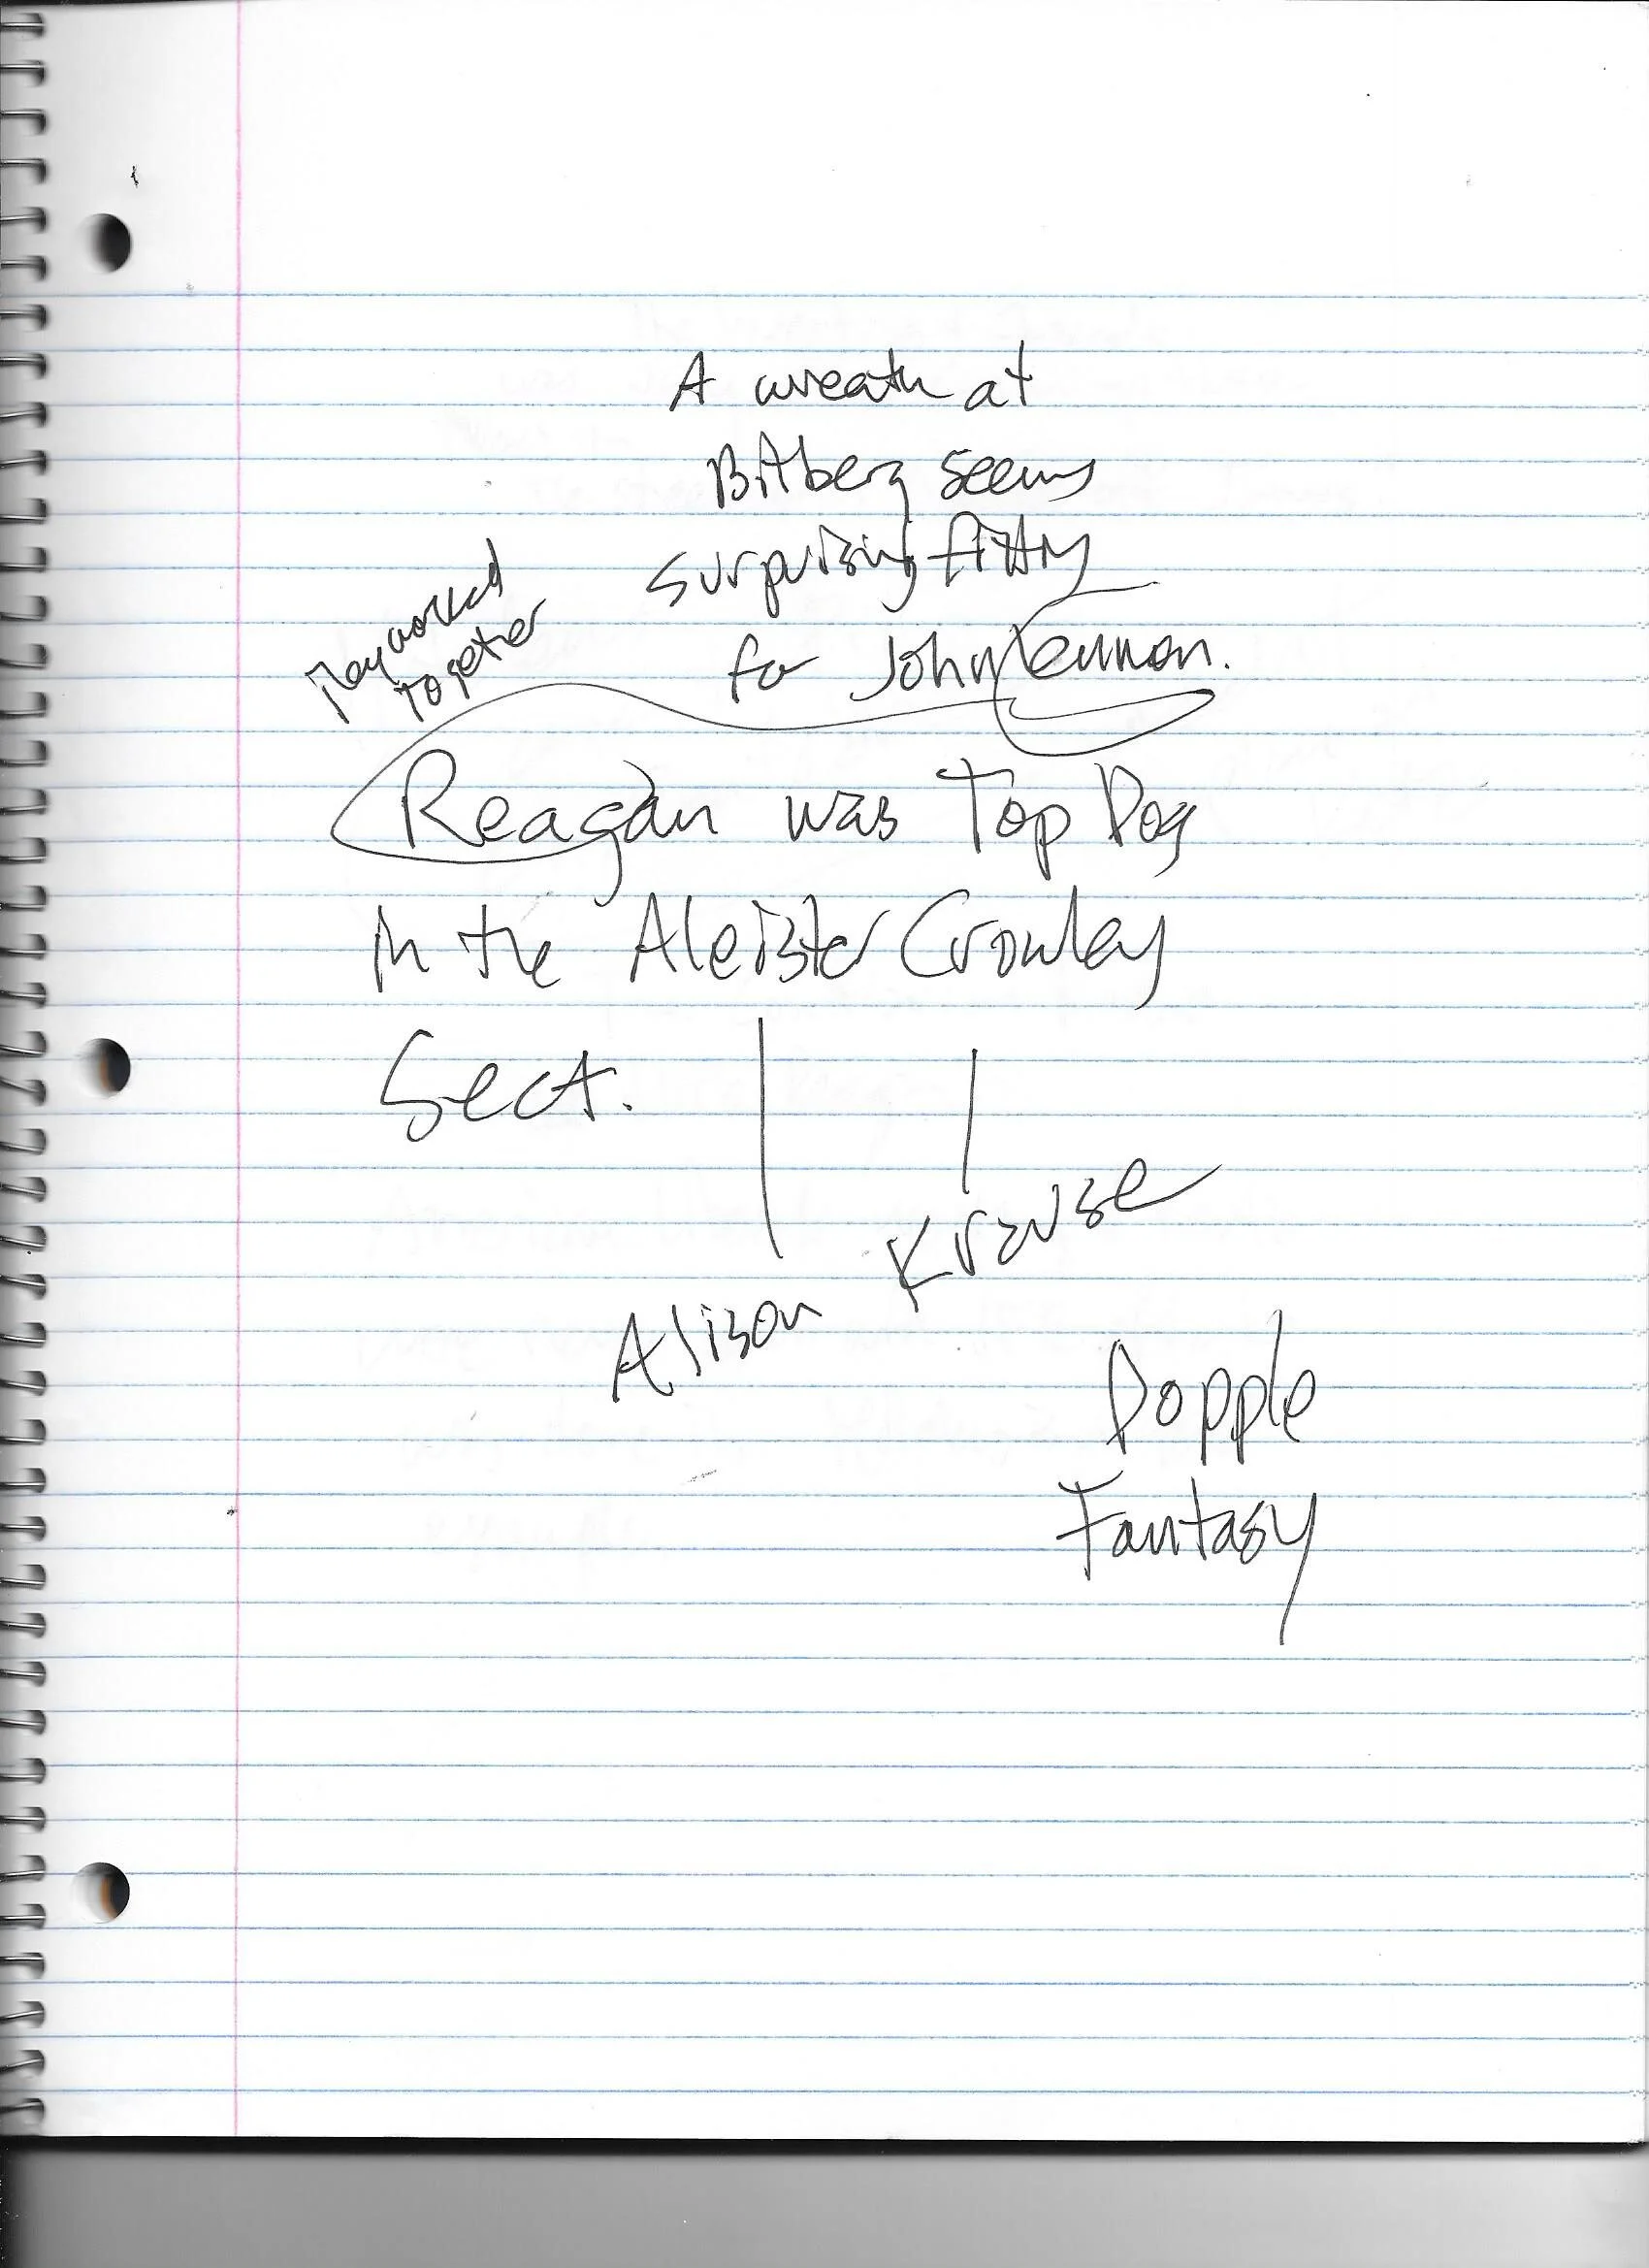 A wreath at
Bitberg seems
surprising fitting
for John Lennon.
They worked
together
Reagan was Top Dog
in the Aleister Crowley
Sect.
Alison Krause
Dopple
Fantasy